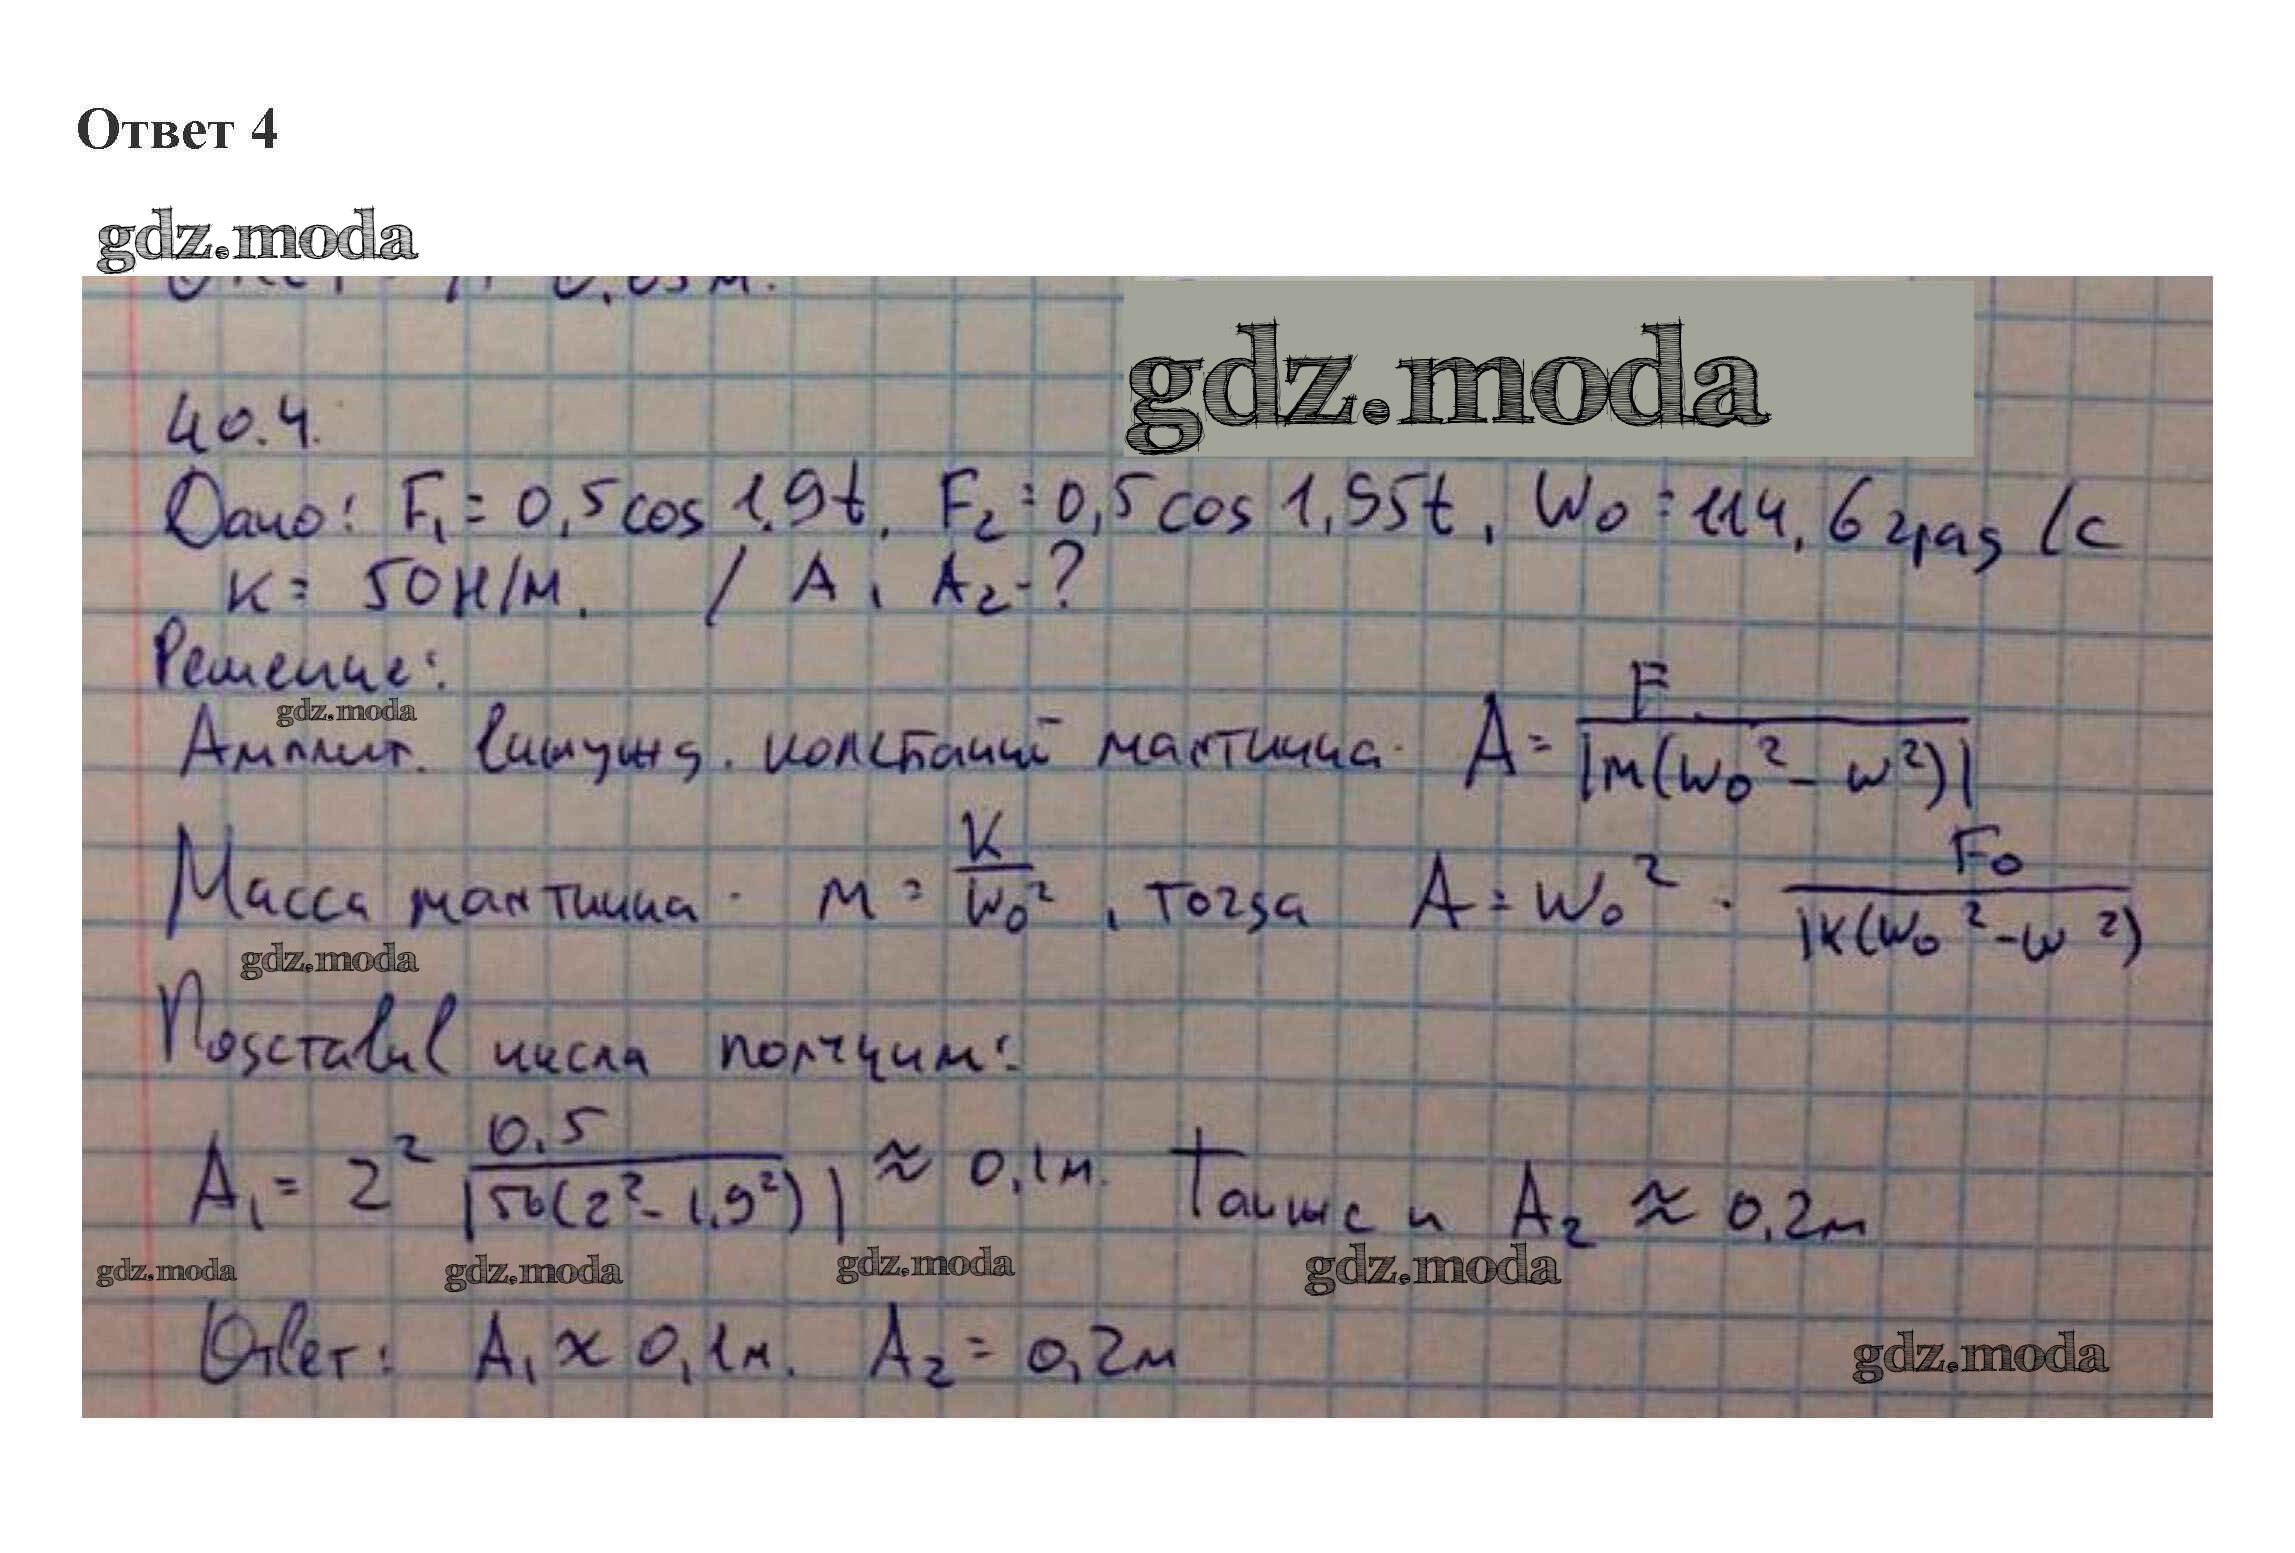 Ответ 4
gdz.moda
gdz.moda
40.4.
Дано: F₁ = 0,5 cos 1,9t, F₂ = 0,5 cos 1,95t, W₀ = 114,6 град/с
K = 50 Н/м. / A₁ A₂ - ?
Решение:
gdz.moda
Амплит. вынужд. колебаний маятника. A = F / |м(w₀² - w²)|
Масса маятника. м = K / W₀², тогда A = W₀² · F₀ / |K(w₀² - w²)
gdz.moda
Подставив числа получим:
A₁ = 2² 0,5 / |50(2² - 1,9²)| ≈ 0,1м. Также и A₂ ≈ 0,2м
gdz.moda gdz.moda gdz.moda gdz.moda
Ответ: A₁ ≈ 0,1м. A₂ = 0,2м
gdz.moda